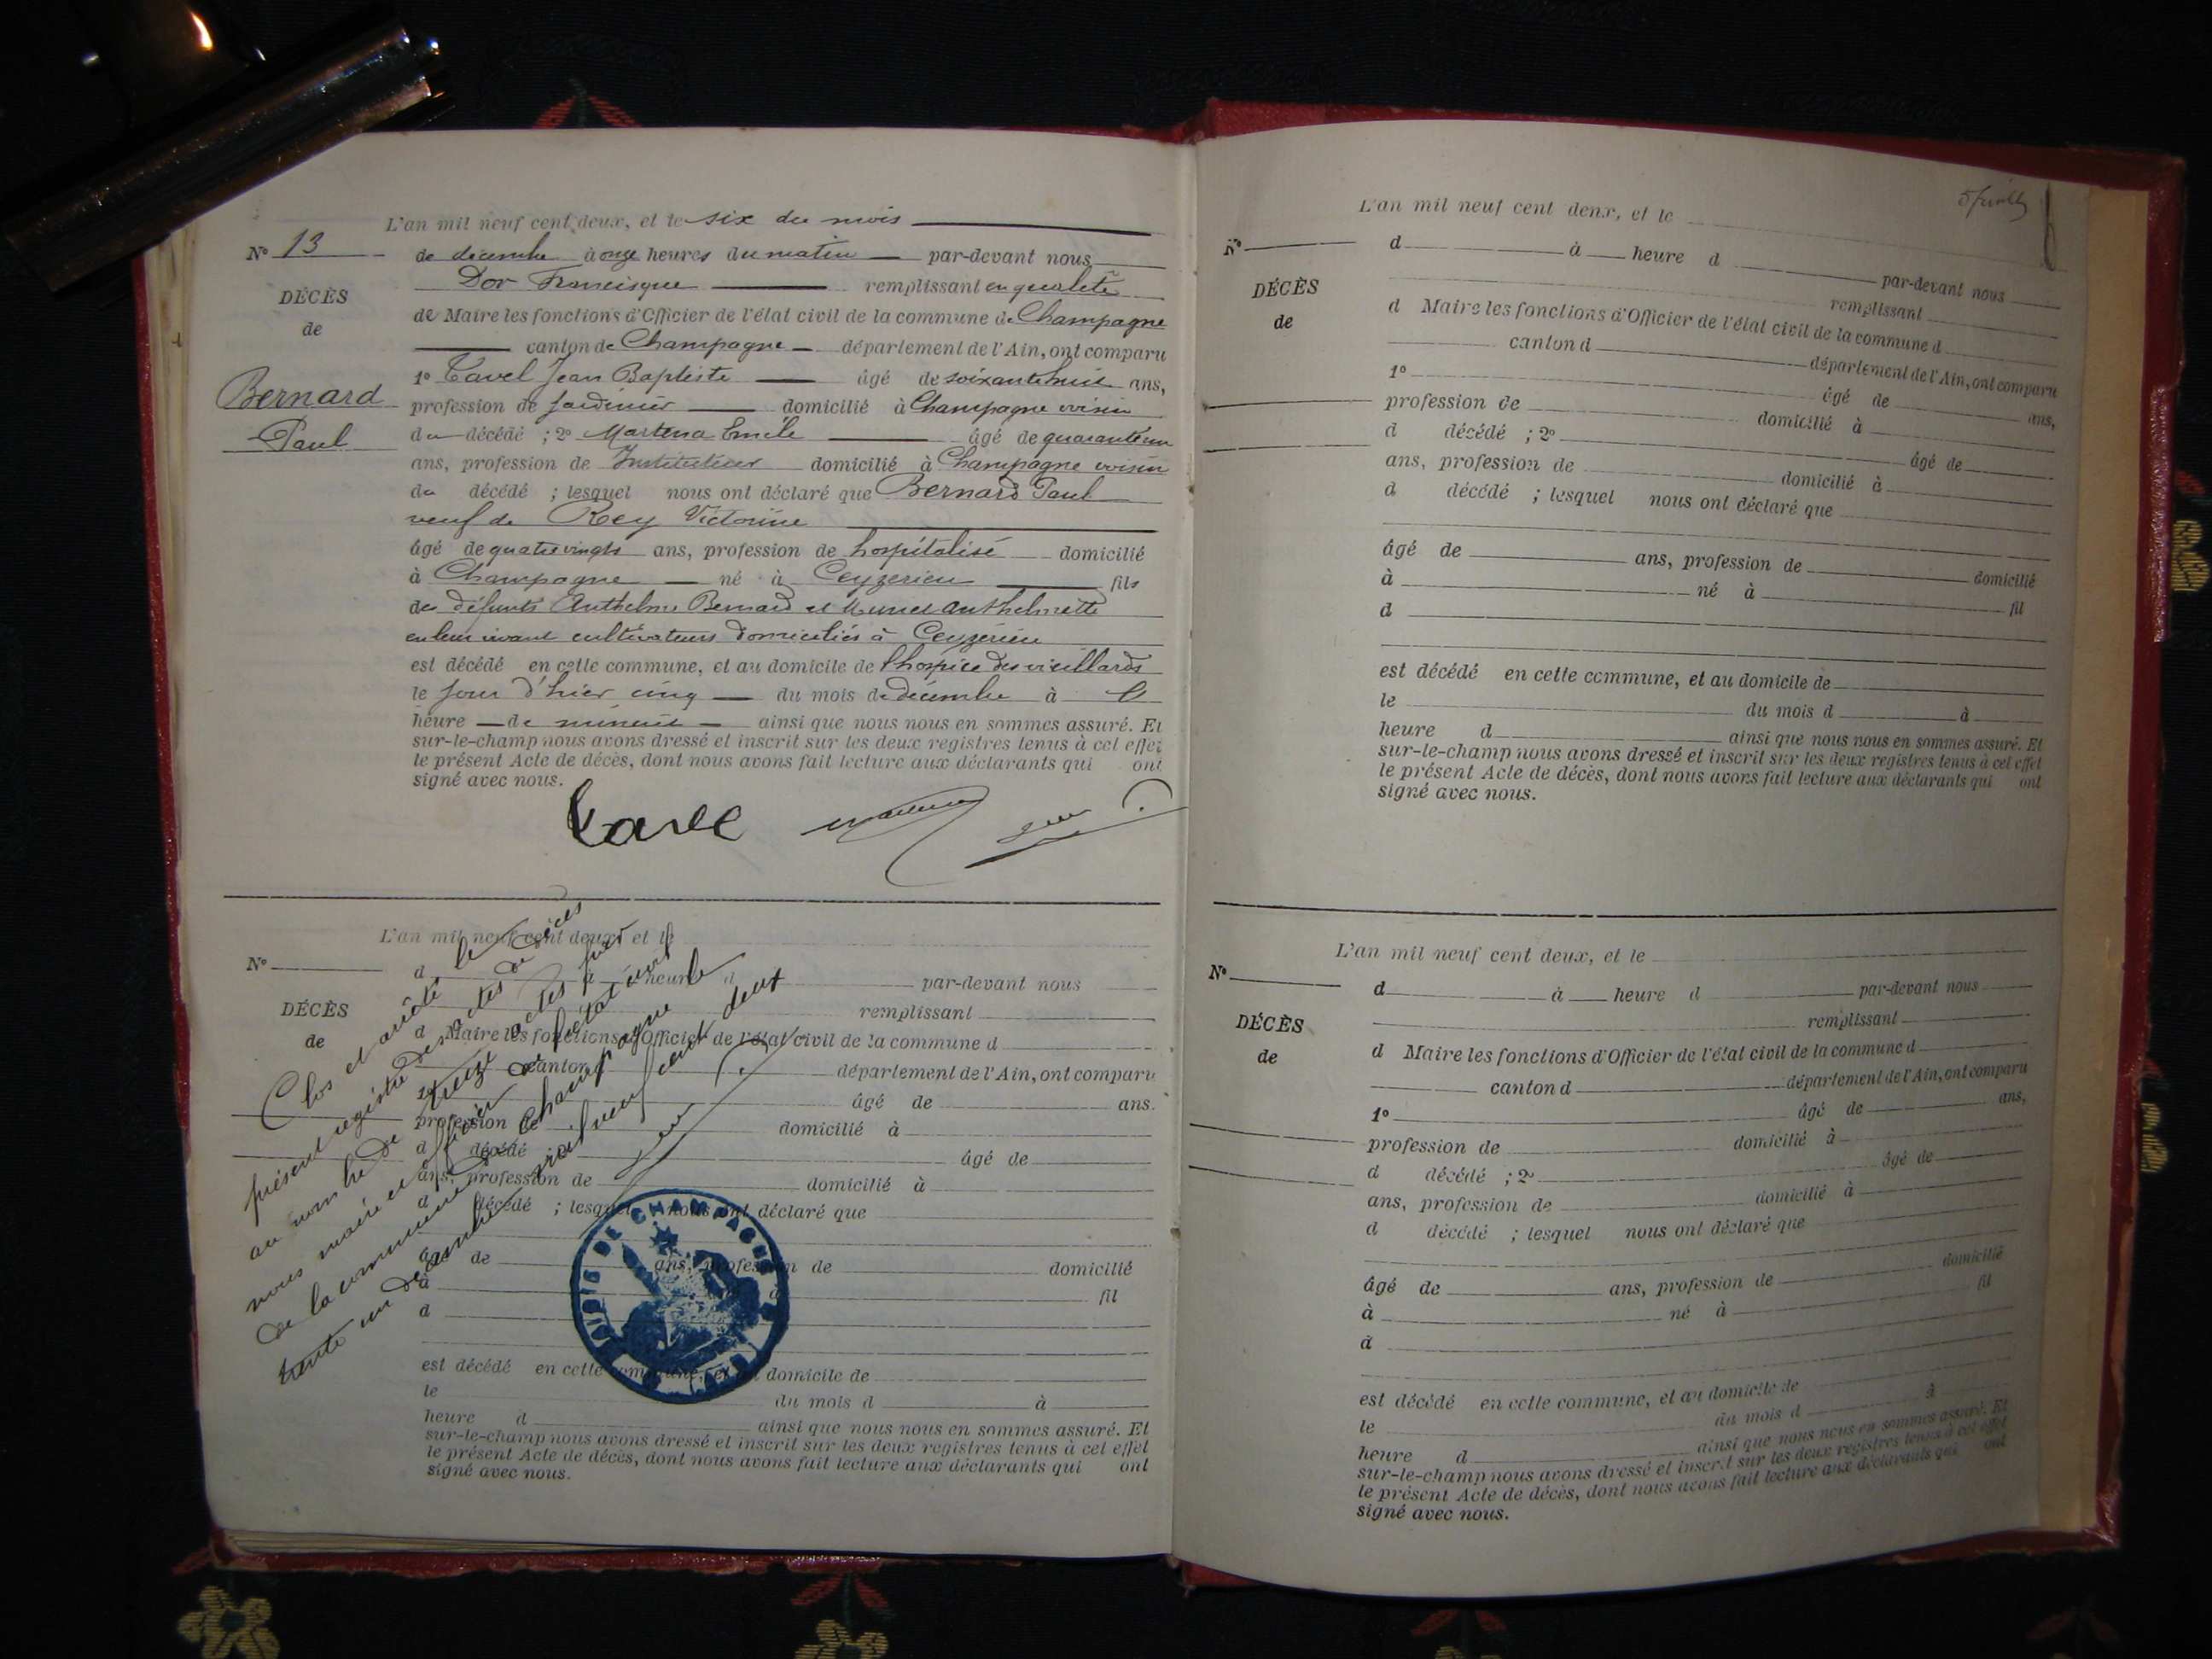 L'an mil neuf cent deux, et le six du mois
N° 13
de décembre à onze heures du matin par-devant nous
Dor Francisque remplissant en qualité
DÉCÈS
de Maire les fonctions d'Officier de l'état civil de la commune de Champagne
de
canton de Champagne département de l'Ain, ont comparu
1° Tavel Jean Baptiste âgé de soixante huit ans,
Bernard
profession de Jardinier domicilié à Champagne voisin
Paul
du décédé ; 2° Martena Emile âgé de quarante un
ans, profession de Instituteur domicilié à Champagne voisin
du décédé ; lesquel nous ont déclaré que Bernard Paul
veuf de Rey Victorine
âgé de quatre vingts ans, profession de hospitalisé domicilié
à Champagne né à Ceyzerieu fils
des défunts Anthelme Bernard et Anthelmette
en leur vivant cultivateurs domiciliés à Ceyzérieu
est décédé en cette commune, et au domicile de l'hospice des vieillards
le jour d'hier cinq du mois de décembre à
heure de minuit ainsi que nous nous en sommes assuré. Et
sur-le-champ nous avons dressé et inscrit sur les deux registres tenus à cet effet
le présent Acte de décès, dont nous avons fait lecture aux déclarants qui ont
signé avec nous.
Tavel
L'an mil neuf cent deux, et le
N°
d à heure d par-devant nous
remplissant
DÉCÈS
d Maire les fonctions d'Officier de l'état civil de la commune d
de
canton d département de l'Ain, ont comparu
1° âgé de ans.
profession de domicilié à
d décédé âgé de
ans, profession de domicilié à
d décédé ; lesquel nous ont déclaré que
âgé de ans, profession de domicilié
à né à fil
d
est décédé en cette commune, et au domicile de
le du mois d à
heure d ainsi que nous nous en sommes assuré. Et
sur-le-champ nous avons dressé et inscrit sur les deux registres tenus à cet effet
le présent Acte de décès, dont nous avons fait lecture aux déclarants qui ont
signé avec nous.
Clos et arrêté le
présent registre des actes de décès
au nombre de treize actes par
nous maire et officier de l'état civil
de la commune de Champagne le
trente un décembre mil neuf cent deux
MAIRIE DE CHAMPAGNE
L'an mil neuf cent deux, et le
N°
d à heure d par-devant nous
remplissant
DÉCÈS
d Maire les fonctions d'Officier de l'état civil de la commune d
de
canton d département de l'Ain, ont comparu
1° âgé de ans,
profession de domicilié à
d décédé ; 2° âgé de
ans, profession de domicilié à
d décédé ; lesquel nous ont déclaré que
âgé de ans, profession de domicilié
à né à fil
d
est décédé en cette commune, et au domicile de
le du mois d à
heure d ainsi que nous nous en sommes assuré. Et
sur-le-champ nous avons dressé et inscrit sur les deux registres tenus à cet effet
le présent Acte de décès, dont nous avons fait lecture aux déclarants qui ont
signé avec nous.
L'an mil neuf cent deux, et le
N°
d à heure d par-devant nous
remplissant
DÉCÈS
d Maire les fonctions d'Officier de l'état civil de la commune d
de
canton d département de l'Ain, ont comparu
1° âgé de ans,
profession de domicilié à
d décédé ; 2° âgé de
ans, profession de domicilié à
d décédé ; lesquel nous ont déclaré que
âgé de ans, profession de domicilié
à né à fil
d
est décédé en cette commune, et au domicile de
le du mois d à
heure d ainsi que nous nous en sommes assuré. Et
sur-le-champ nous avons dressé et inscrit sur les deux registres tenus à cet effet
le présent Acte de décès, dont nous avons fait lecture aux déclarants qui ont
signé avec nous.